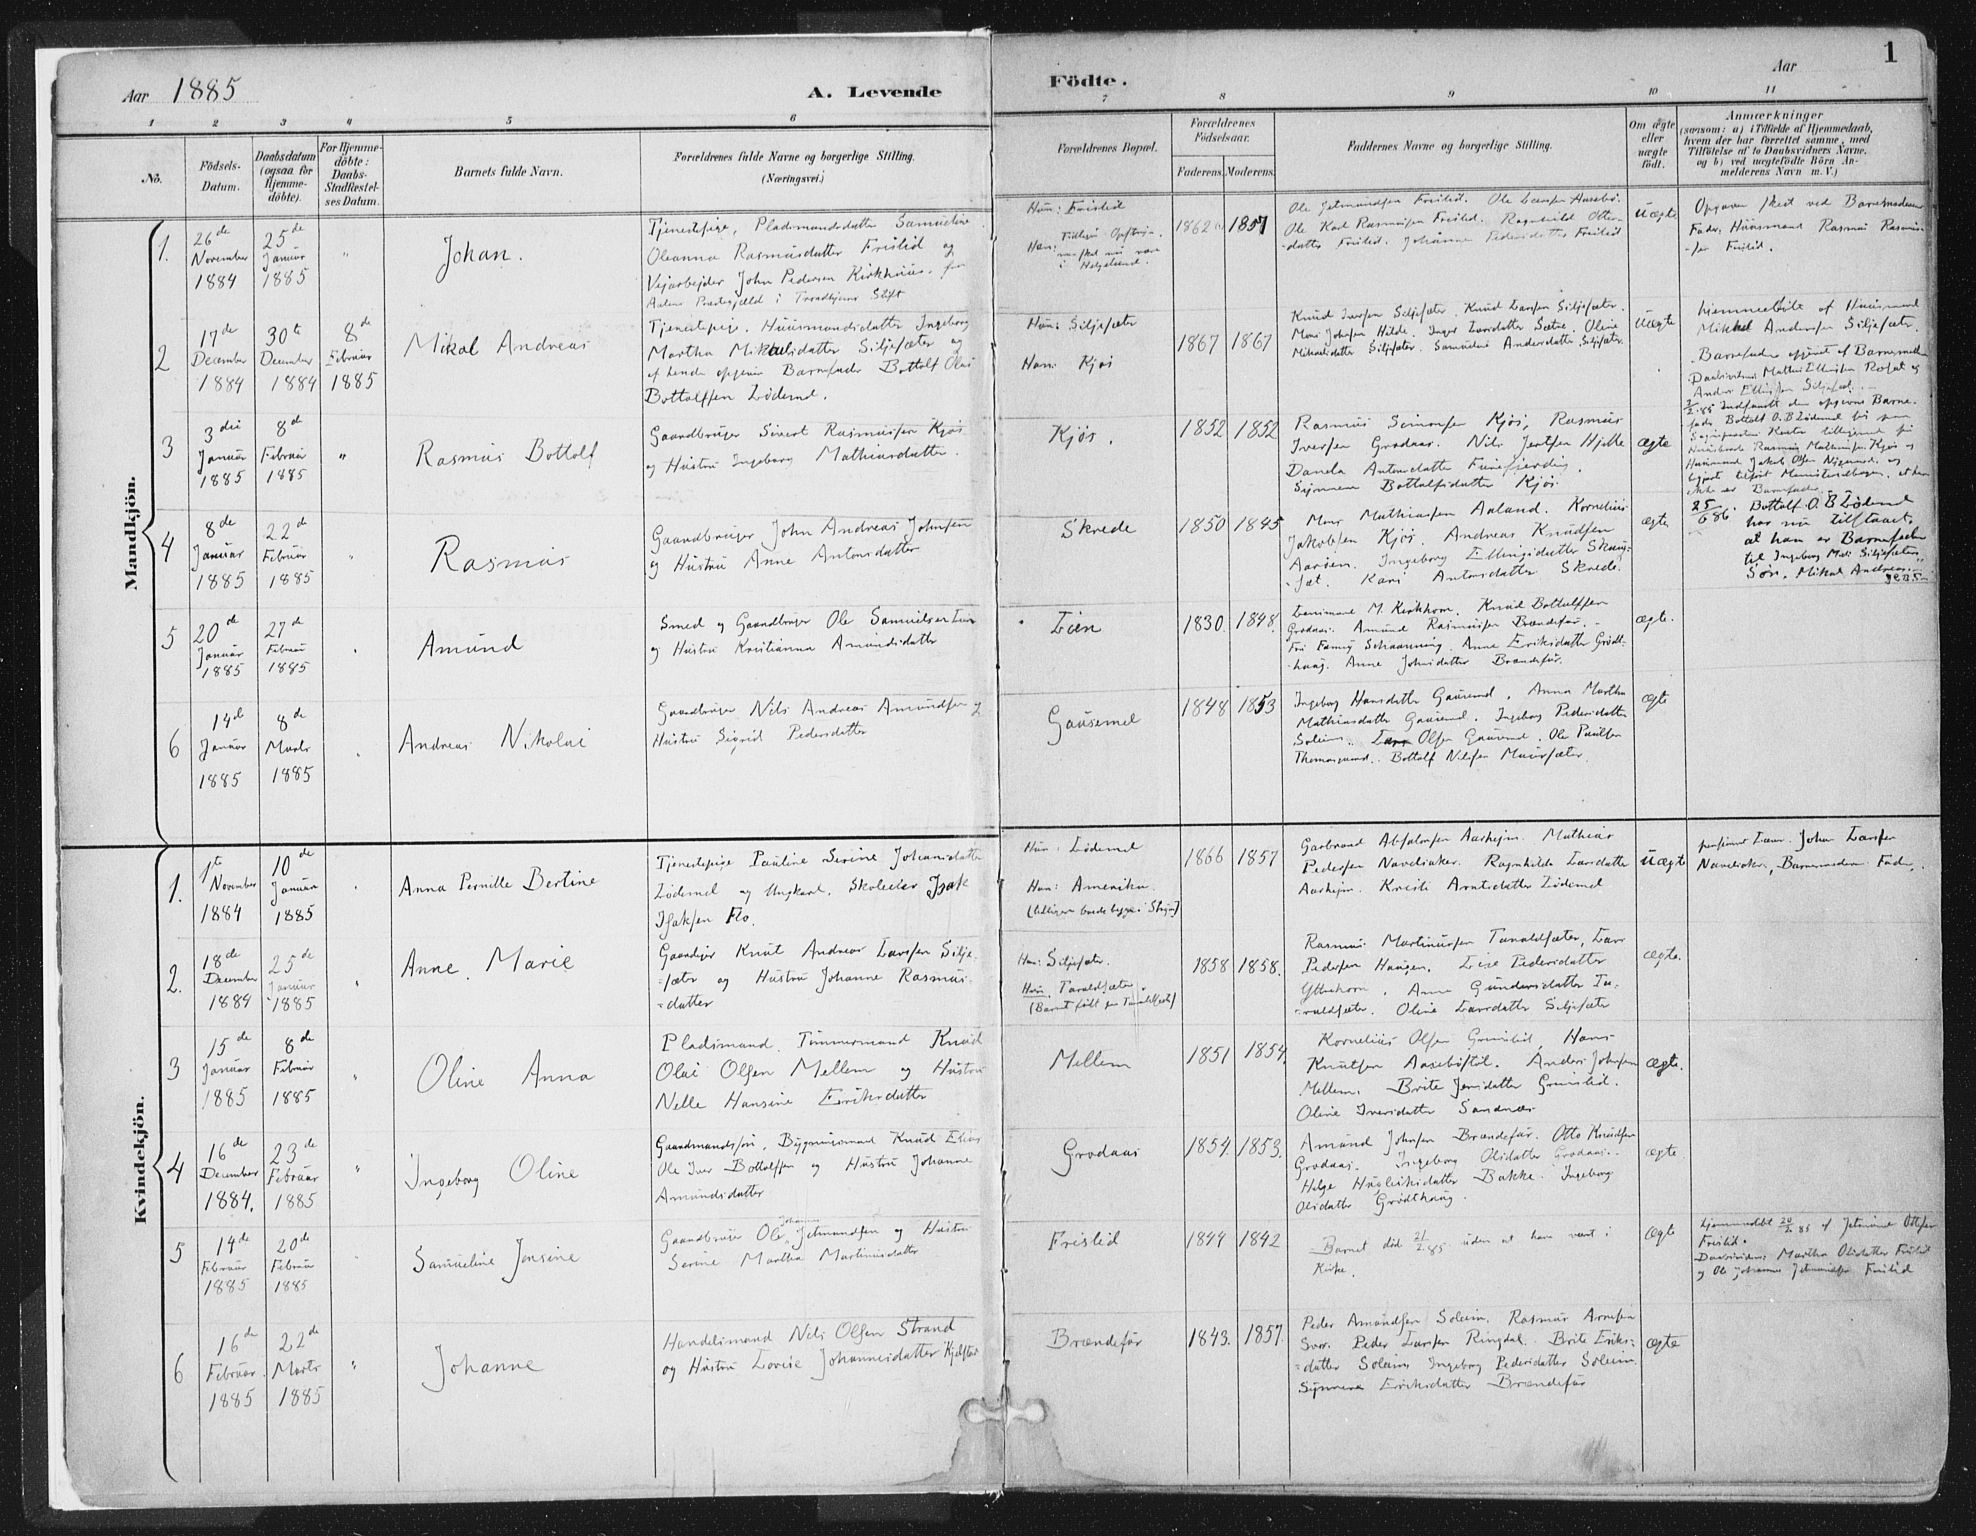 Aar 1885
A. Levende
Födte.
Aar
1
1 2 3 4 5 6 7 8 9 10 11
No.
Födsels-
Datum.
Daabsdatum
(ogsaa for
Hjemme-
döbte).
For Hjemme-
döbte:
Daabs-
Stadfæstel-
ses Datum.
Barnets fulde Navn.
Forældrenes fulde Navne og borgerlige Stilling.
(Næringsvei.)
Forældrenes Bopæl.
Forældrenes
Födselsaar.
Faderens. Moderens.
Faddernes Navne og borgerlige Stilling.
Om ægte
eller
uægte
født.
Anmærkninger
(saasom: a) i Tilfælde af Hjemmedaab,
hvem der har forrettet samme, med
Tilföielse af to Daabsvidners Navne,
og b) ved uægtefödte Börn An-
melderens Navn m. V.)
Mandkjön.
1.
26de
November
1884
25de
Januar
1885
"
Johan.
Tjenestepige, Pladsmandsdatter Samueline
Oleanna Rasmusdatter Frislid og
Vejarbejder John Pedersen Kirkhuus. fra
Aalens Præstegjæld i Trondhjems Stift
Hun: Frislid
Han:
i Helgeland.
1862 1857
Ole Jetmundsen Frislid. Ole Larsen Aasebö.
Ole Karl Rasmusen Frislid. Ragnhild Otter-
datter Frislid. Johanne Pedersdatter Frislid
Uægte
Opgaven skeet ved Barnemoderens
Fader, Huusmand Rasmus Rasmus-
sen Frislid.
2
17de
December
1884
30te
December
1884
8de
Februar
1885
Mikal Andreas
Tjenestepige, Huusmandsdatter Ingeborg
Martha Mikkelsdatter Siljesæter og
af hende opgiven Barnefader Bottolf Olai
Bottolfsen Lödemel.
Hun: Siljesæter
Han: Kjøs
1867 1867
Knud Iversen Siljesæter. Knud Larsen Siljesæter.
Mons Johnsen Hilde. Inger Larsdatter Sætre. Oline
Mikkelsdatter Siljesæter. Samueline Andersdatter Siljesæter.
Uægte
hjemmedöbt af Huusmand
Mikkel Andersen Siljesæter.
Barnefader opgivet af Barnemoderen
Daabsvidner: Mathias Ellingsen Roset og
Anders Ellingsen Siljesæt.
2/2.85 Indfandt den opgivne Barne-
fader Bottolf O. B. Lödemel sig paa
Rasmus Mathiassen Kjøs og
Huusmand Jakob Olsen
ikke er Barnefader.
25/6 86. Bottolf O. B Lödemel
har nu tilstaaet,
at han er Barnefader
til Ingeborg Mar. Siljesæters
Sön, Mikal Andreas.
3
3die
Januar
1885
8de
Februar
1885
"
Rasmus Bottolf
Gaardbruger Sivert Rasmussen Kjøs
og Hustru Ingeborg Mathiasdatter.
Kjøs.
1852 1852
Rasmus Simonsen Kjøs, Rasmus
Iversen Grodaas. Nils Jentsen Hjelle
Danela Antonsdatter
Synneva Bottolfsdatter Kjøs.
ægte
4
8de
Januar
1885
22de
Februar
1885
"
Rasmus
Gaardbruger John Andreas Johnsen
og Hustru Anne Antonsdatter
Skrede
1850 1845
Mons Mathiassen Aaland. Kornelius
Jakobsen Kjøs. Andreas Knudsen
Aarsen. Ingeborg Ellingsdatter Skaug-
sæt. Kari Antonsdatter Skrede.
ægte
5
20de
Januar
1885
27de
Februar
1885
Amund
Smed og Gaardbruger Ole Samuelsen Lien
og Hustru Kristianna Amundsdatter
Lien
1830 1848.
Lensmand M. Kirkhorn. Knud Bottolfsen
Grodaas. Amund Rasmussen Brændefur.
Frk Fanny Schaanning. Anne Eriksdatter Grodt-
haug. Anne Johnsdatter Brændefur.
ægte.
6
14de
Januar
1885
8de
Marts
1885
Andreas Nikolai
Gaardbruger Nils Andreas Amundsen og
Hustru Sigrid Pedersdatter
Gausemel
1848 1853
Ingeborg Hansdatter Gausemel. Anna Martha
Mathiasdatter Gausemel. Ingeborg Pedersdatter
Soleim. Lars Olsen Gausemel. Ole Paulsen
Thomasgaard. Bottolf Nilssen Muursæter.
ægte
Kvindekjön.
1.
1te
November
1884
10de
Januar
1885
Anna Pernille Bertine
Tjenestepige Pauline Serine Johansdatter
Lödemel og Ungkarl. Skolelærer Isak
Isaksen Flo.
Hun: Lödemel
Han: Amerika.
1866 1857
Garbrand Absalonsen Aarhejm. Mathias
Pedersen Navelsaker. Ragnhilde Larsdatter
Aarhejm. Kristi Arntsdatter Lödemel
Uægte
John Larsen
Navelsaker, Barnemoderens Fader.
2.
18de
December
1884
25de
Januar
1885
Anne Marie
Gaardejer Knut Andreas Larssen Silje-
sæter og Hustru Johanne Rasmus-
datter
Han: Siljesæter.
Hun: Taraldsæter
(Barnet født paa Taraldsæt)
1858 1858.
Rasmus Martinussen Taraldsæter, Lars
Pedersen Haugen. Lise Pedersdatter
Yttrehorn. Anne Gundersdatter Ta-
raldsæter. Oline Larsdatter Siljesæter
ægte.
3
15de
Januar
1885
8de
Februar
1885
"
Oline Anna
Pladsmand. Tømmermand Knud
Olai Olsen Mellem og Hustru
Nelle Hansine Eriksdatter
Mellem
1851 1854.
Kornelius Olsen Grinslid, Hans
Knutsen Aasebøstöl. Anders Johnsen
Mellem. Brite Jensdatter Grinslid.
Oline Iversdatter Sandnæs
ægte.
4
16de
December
1884.
23de
Februar
1885
"
Ingeborg Oline
Gaardmandssön, Bygningsmand Knud Elias
Ole Iver Bottolfsen og Hustru Johanne
Amundsdatter
Grodaas
1854. 1853.
Amund Johnsen Brændefur. Otto Knudsen
Grodaas. Ingeborg Olsdatter Grodaas.
Helge Husleiksdatter Bakke. Ingeborg
Olsdatter Grodthaug.
ægte
5
14de
Februar
1885
20de
Februar
1885
Samueline Jensine
Gaardbruger Ole Johannes Jetmundsen og Hustru
Serine Martha Martinusdatter
Frislid
1844 1842
Barnet død 21/2.85 uden at have været i
Kirke.
ægte
hjemmedøbt 20/2.85 af Jetmund Ottesen
Frislid.
Daabsvidner: Martha Olsdatter Frislid
og Ole Johannes Jetmundsen Frislid
6
16de
Februar
1885
22de
Marts
1885
"
Johanne
Handelsmand Nils Olsen Strand
og Hustru Lovise Johannesdatter Kjelstad
Brændefur
1843. 1857.
Peder Amundsen Soleim. Rasmus Arnesen
Svor. Peder Larsen Ringdal. Brite Eriks-
datter Soleim, Ingeborg Pedersdatter Soleim.
Synneve Eriksdatter Brændefur
ægte